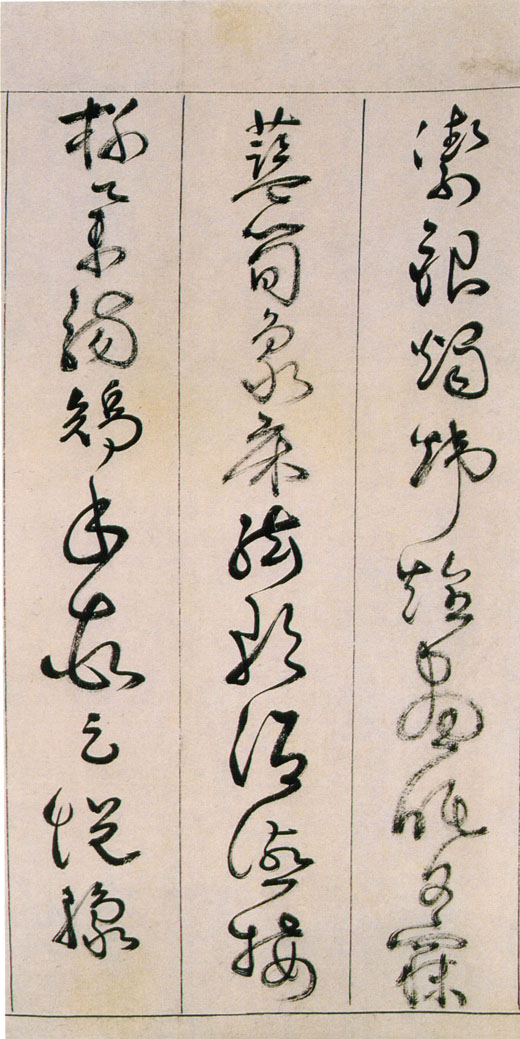 潔銀燭煒煌晝眠夕寐
藍筍象床弦歌酒讌接
杯舉觴矯手頓足悅豫